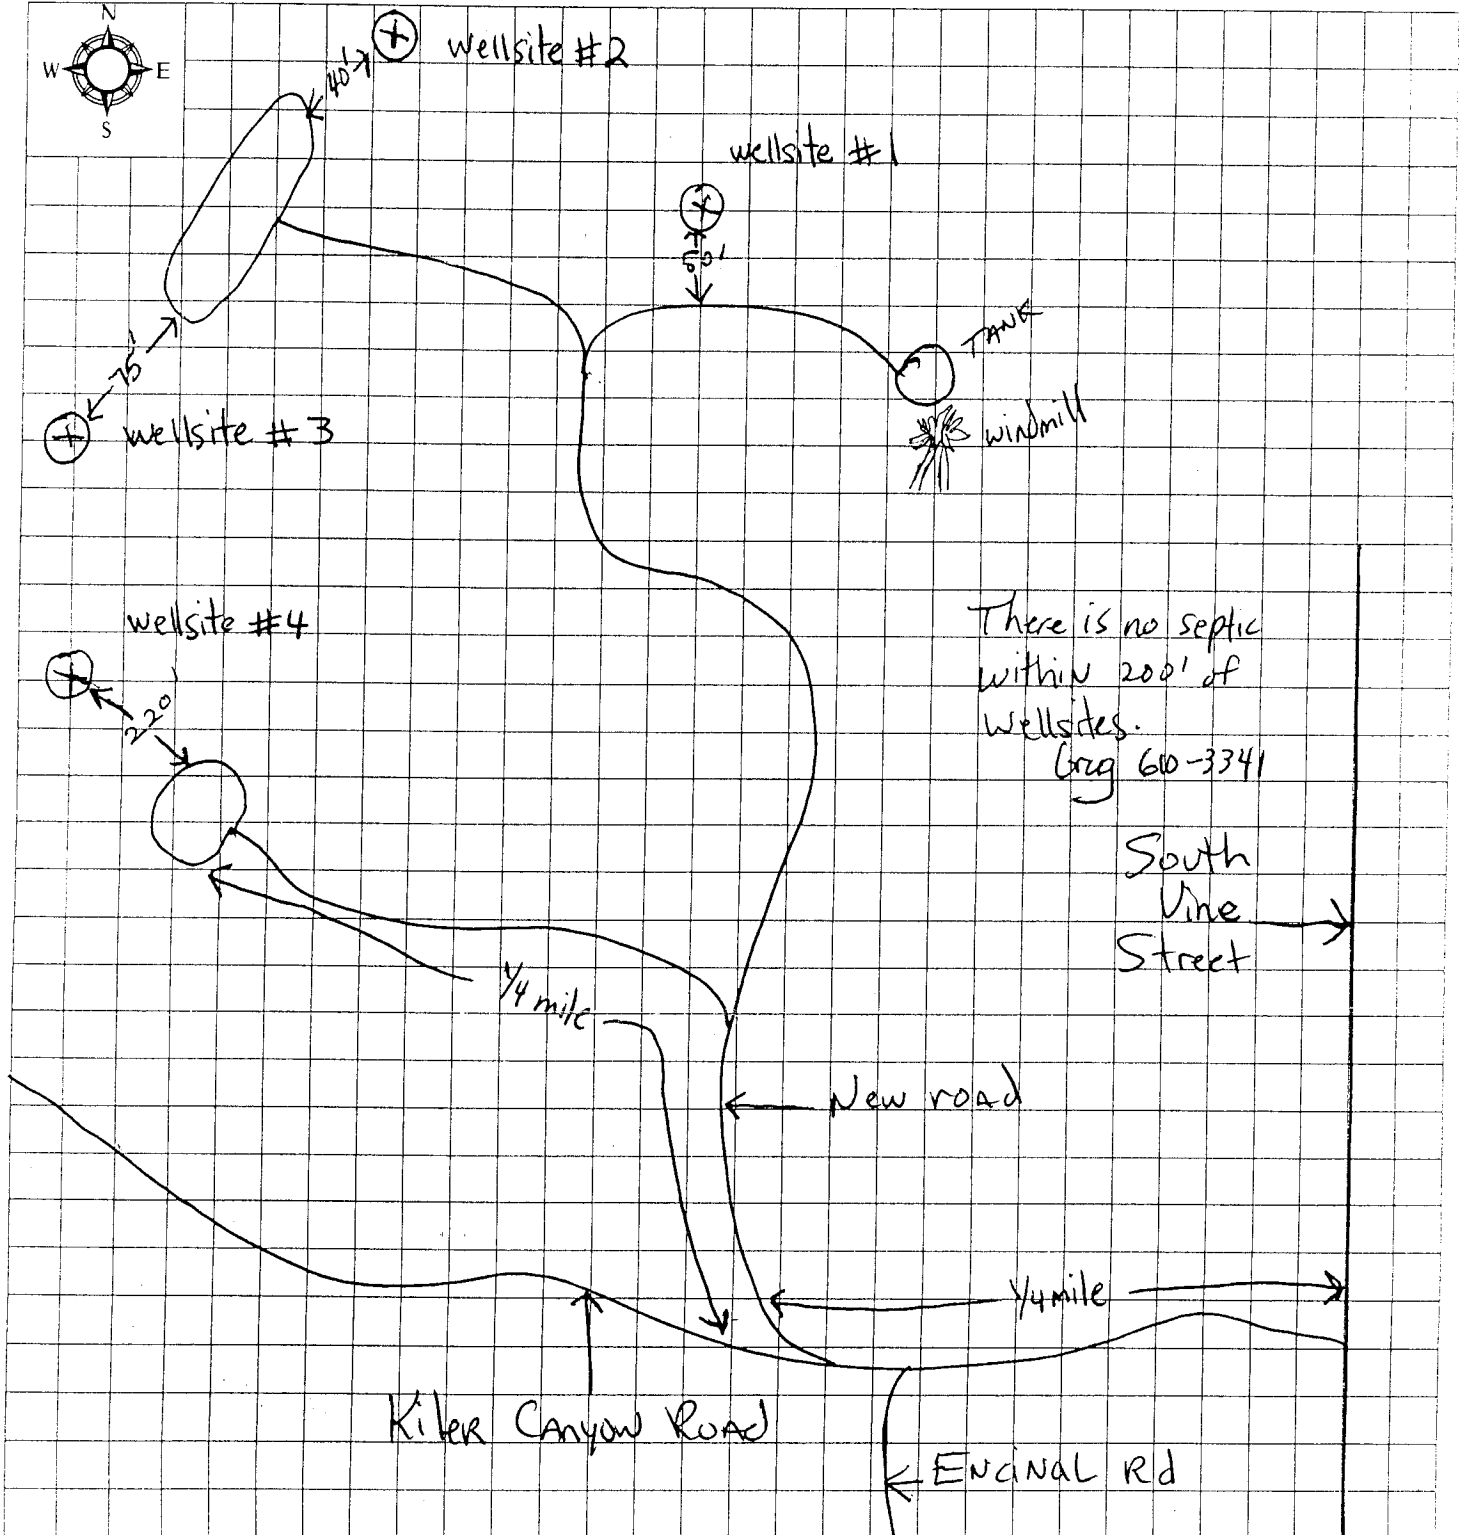 N
W E
S
wellsite #2
40'
wellsite #1
50'
TANK
windmill
75'
wellsite #3
wellsite #4
220'
There is no septic
within 200' of
wellsites.
Greg 610-3341
South
Vine
Street
1/4 mile
New road
1/4 mile
Kiler Canyon Road
Encinal Rd